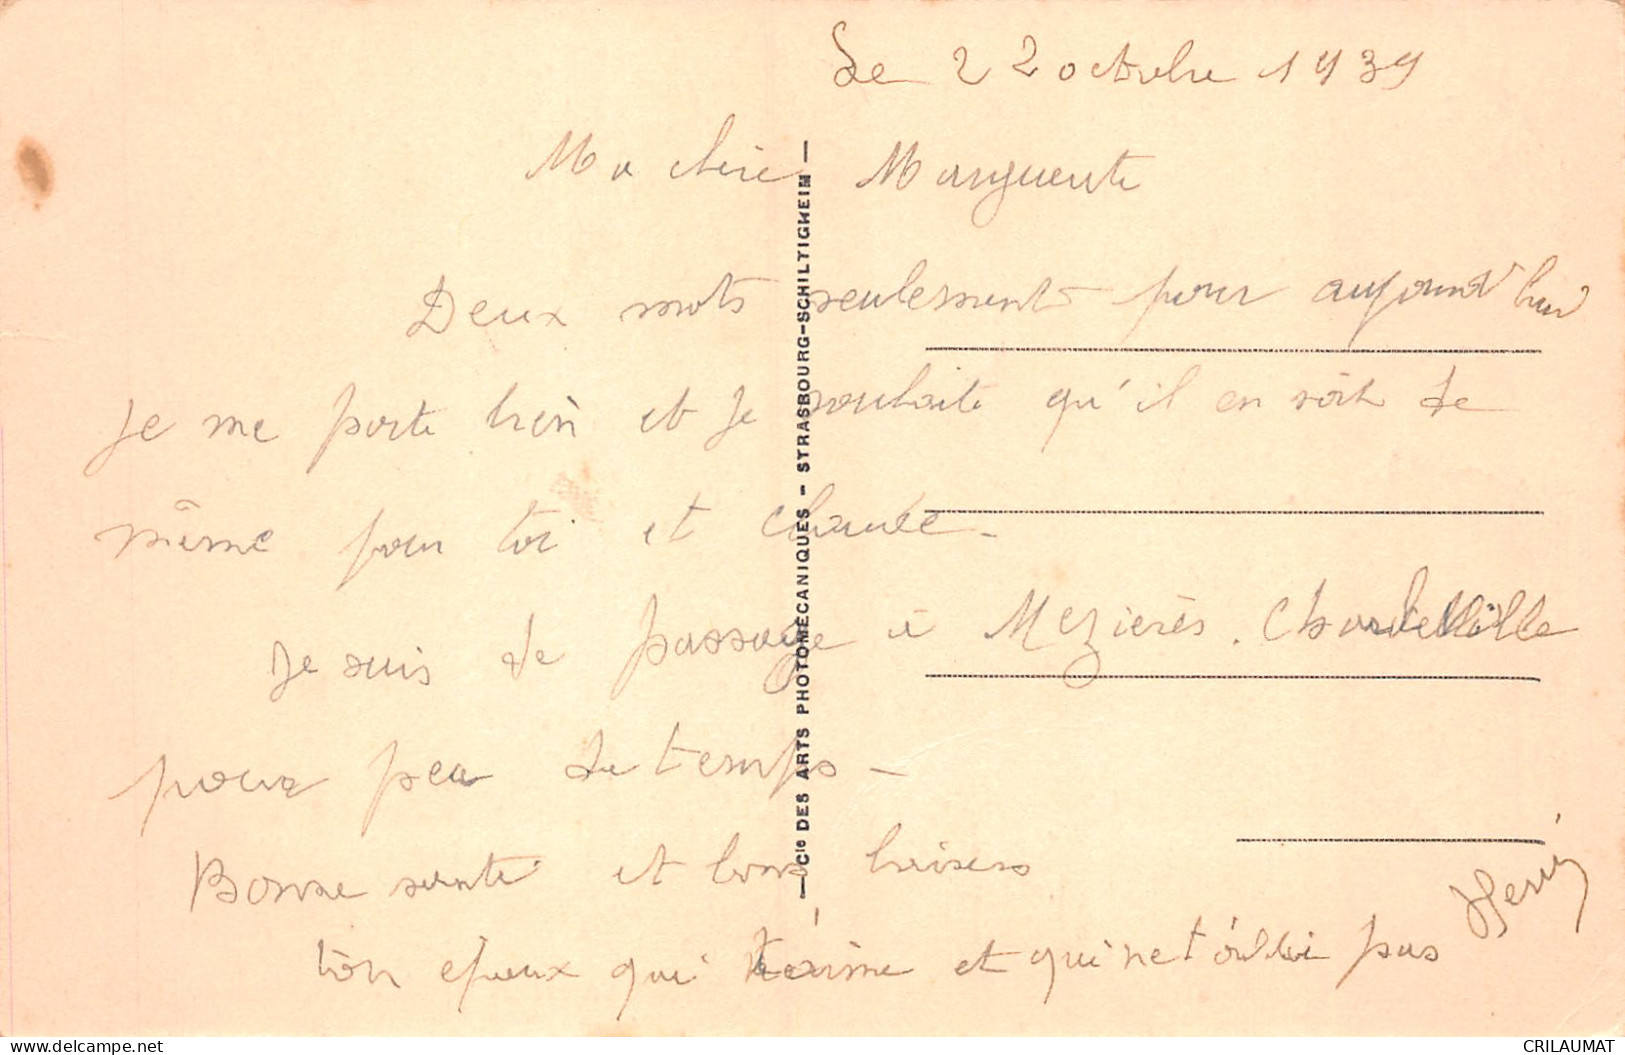 Le 22 octobre 1939
Ma chère Marguerite
Deux mots seulement pour aujourd'hui
Je me porte bien et je souhaite qu'il en soit de
même pour toi et
Je suis de passage à Mezières. Charleville
pour peu de temps -
Bonne santé et bons baisers
ton époux qui t'aime et qui ne t'oublie pas
Henri
— Cie DES ARTS PHOTOMÉCANIQUES - STRASBOURG-SCHILTIGHEIM —
delcampe.net
CRILAUMAT